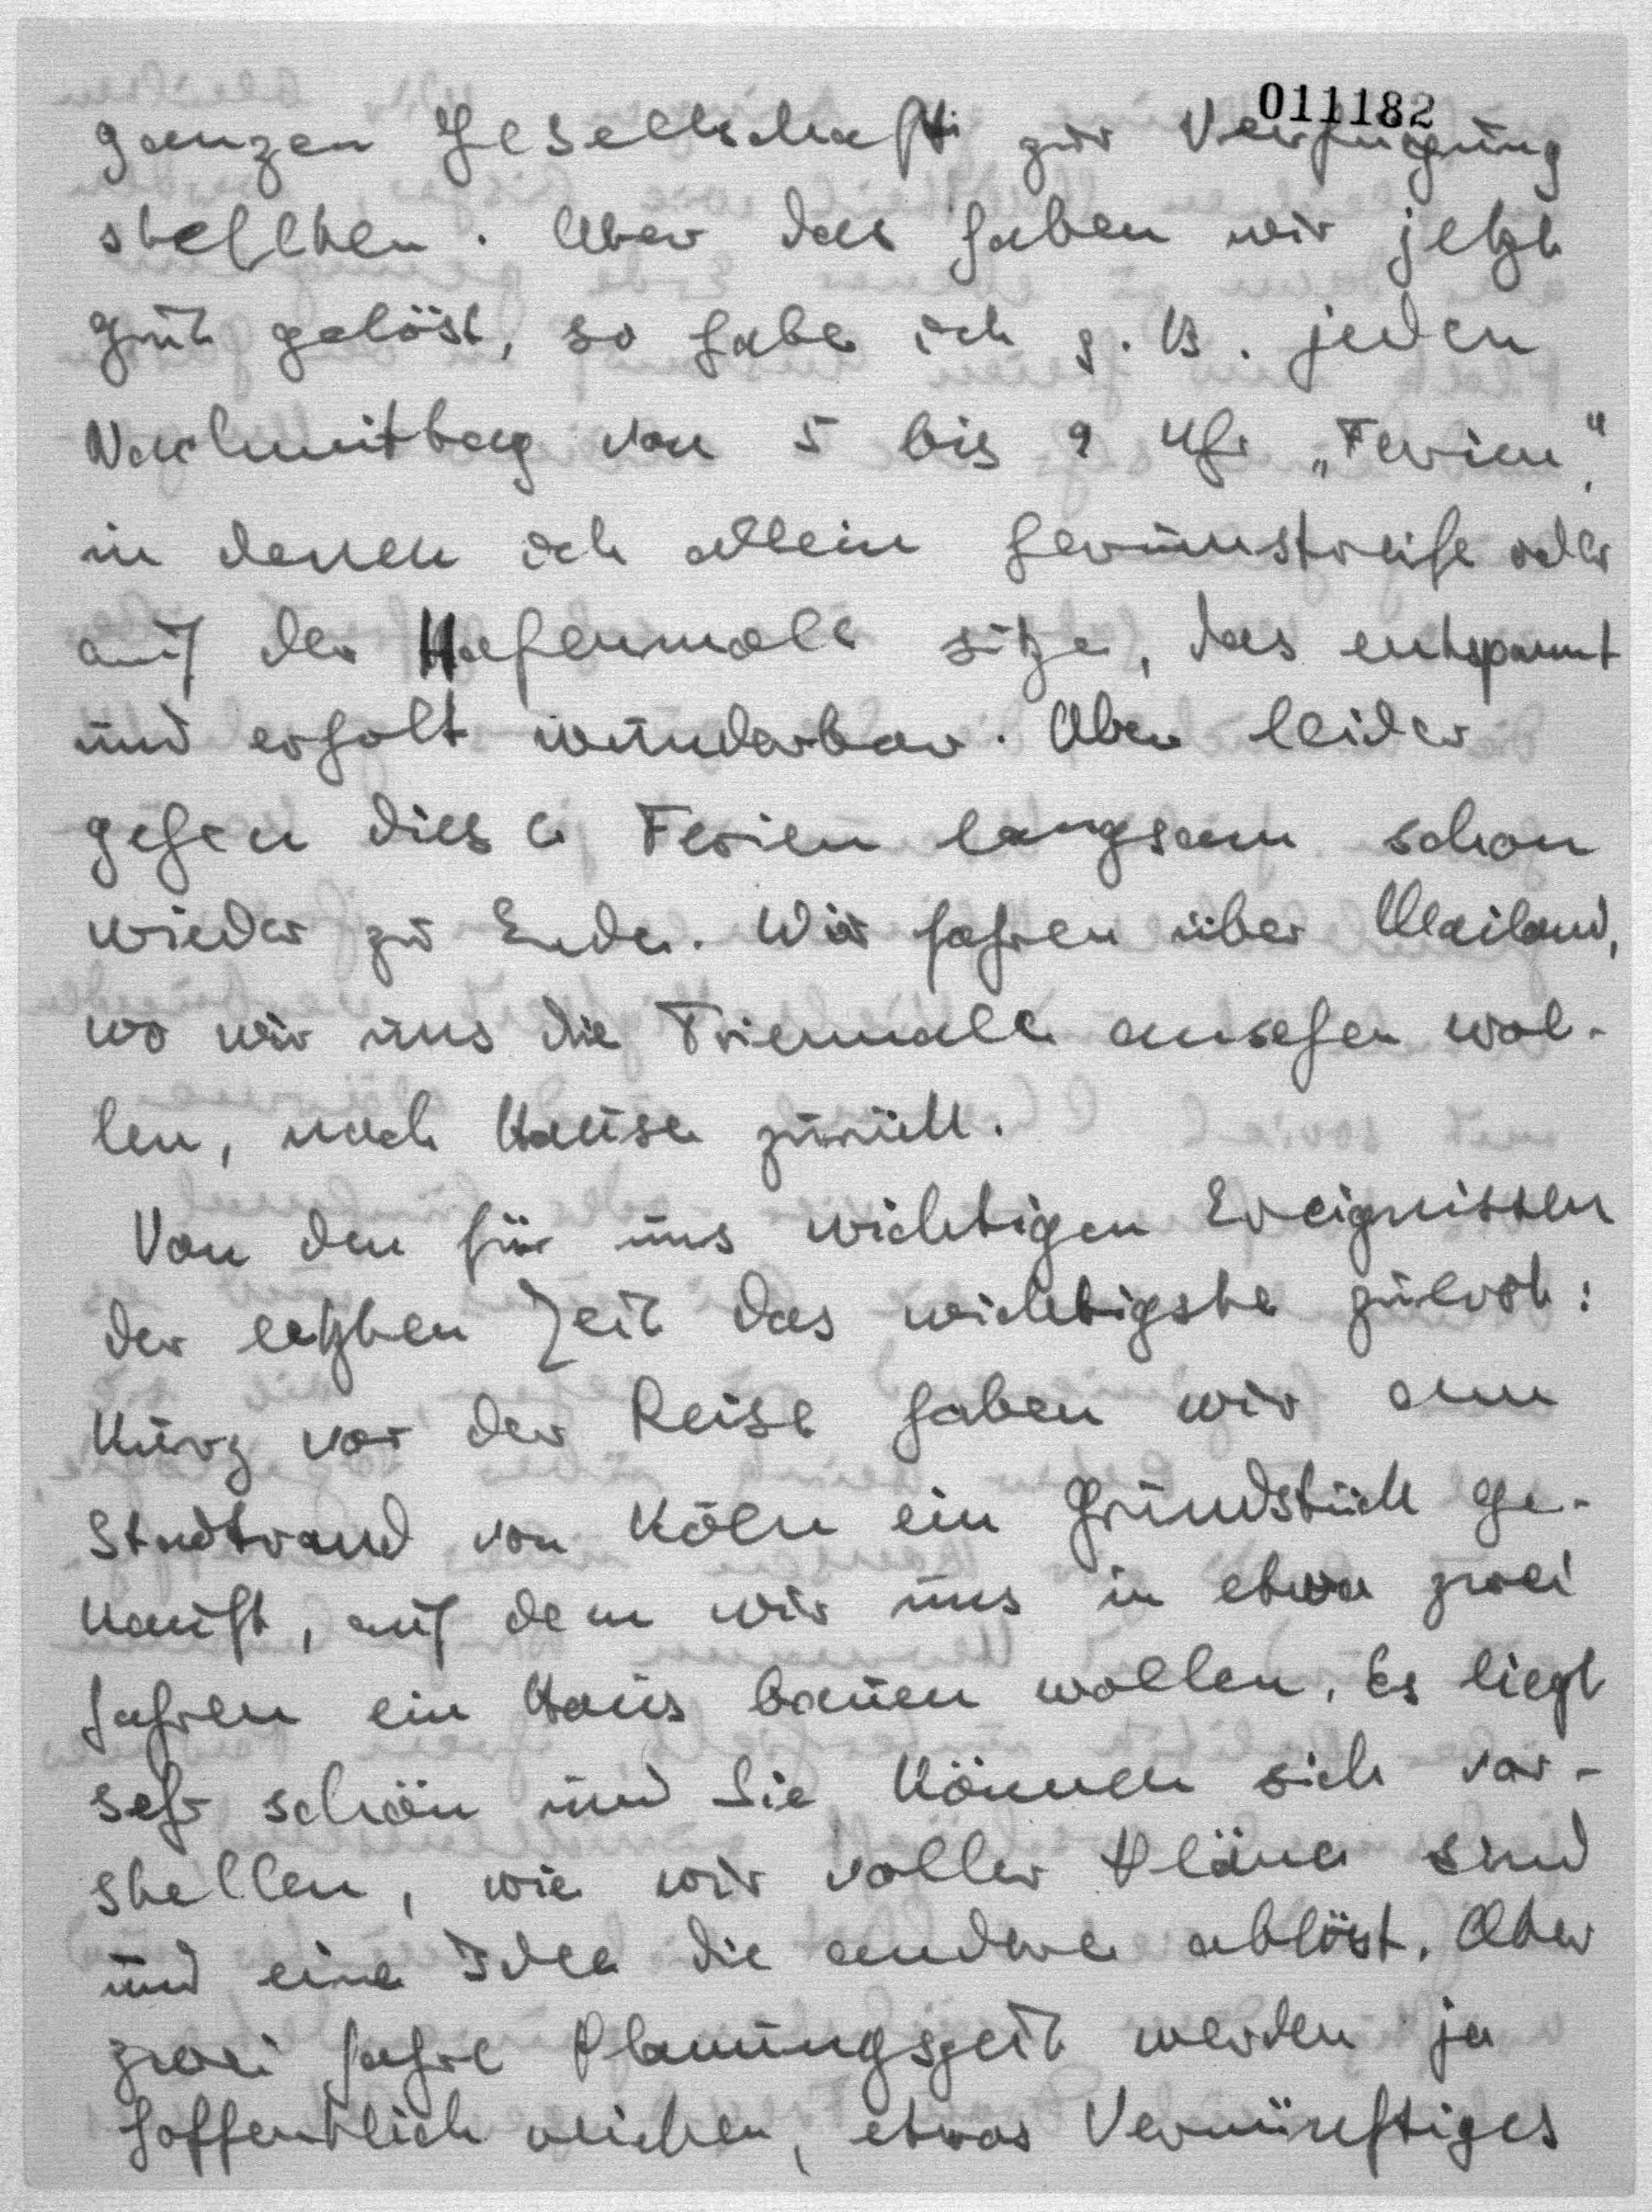 011182
ganzen Gesellschaft zur Verfügung
stellten. Aber das haben wir jetzt
gut gelöst, so habe ich z. B. jeden
Nachmittag von 5 bis 9 Uhr „Ferien“,
in denen ich allein herumstreife oder
auf der Hafenmole sitze, das entspannt
und erholt wunderbar. Aber leider
gehen diese Ferien langsam schon
wieder zu Ende. Wir fahren über Mailand,
wo wir uns die Triennale ansehen wol-
len, nach Hause zurück.
Von den für uns wichtigen Ereignissen
der letzten Zeit das wichtigste zuerst:
Kurz vor der Reise haben wir am
Stadtrand von Köln ein Grundstück ge-
kauft, auf dem wir uns in etwa zwei
Jahren ein Haus bauen wollen. Es liegt
sehr schön und Sie können sich vor-
stellen, wie wir voller Pläne sind
und eine Idee die andere ablöst. Aber
zwei Jahre Planungszeit werden ja
hoffentlich reichen, etwas Vernünftiges